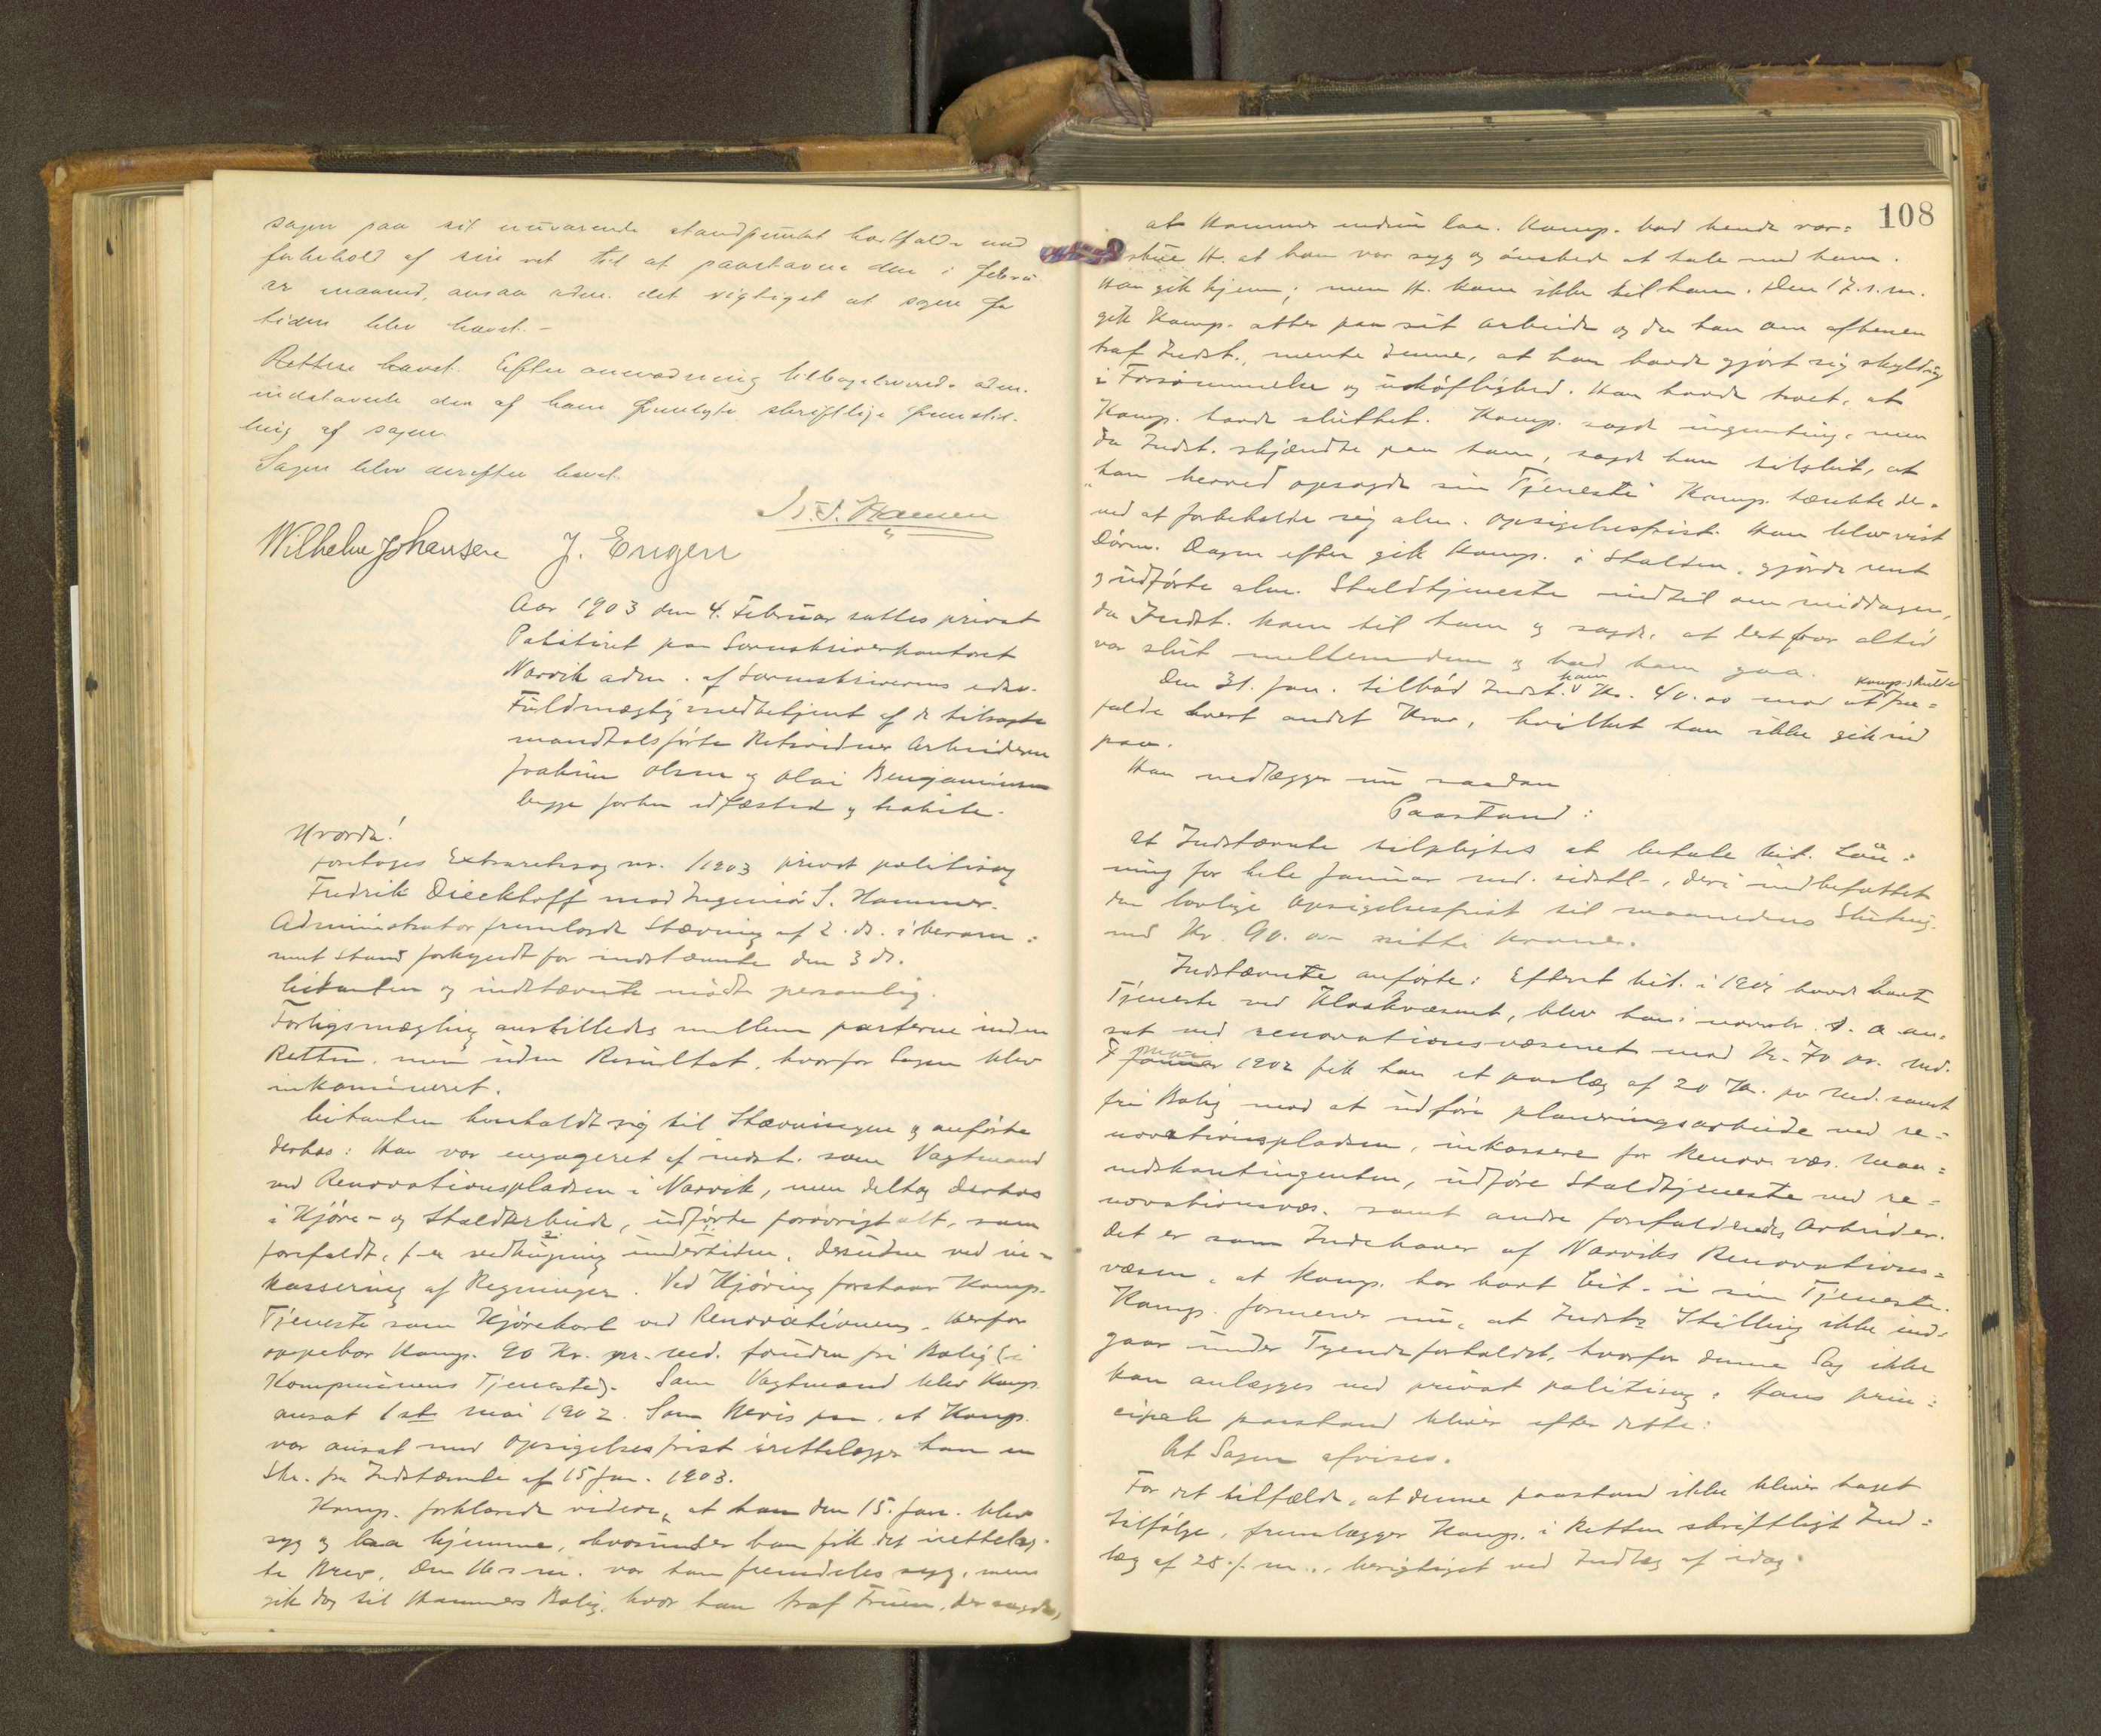 sagen paa sit nuværende standpunkt bortfalde med
forbehold af sin ret til at paastævne den i februa-
ar maaned, ansaa adm. det rigtigst at sagen for
tiden blev hævet.-
Retten hævet. Efter anmodning tilbageleverede adm.
indstævnte den af ham fremlagte skriftlige fremstil-
ling af sagen.
Sagen blev derefter hævet.
Wilhelm Johansen J. Engen
Aar 1903 den 4. Februar sattes privat
Politiret paa Sorenskriverkontoret
Narvik adm. af Sorenskriverens edsv.
Fuldmægtig med betjent af de tilsagte
mandtalsførte Retsvidner Arbeiderne
Joakim Olsen og Olai Benjaminsen
begge forhen edfæsted og habile.
Hvorda!
foretoges Extraretssag nr. 1/1903 privat politisag
Fredrik Dieckhoff mod Ingeniør S. Hammer.
Administrator fremlagde Stævning af 2. ds. i beram=
met stand forkyndt for indstævnte den 3 ds.
Citanten og indstævnte mødte personlig.
Forligsmægling anstilledes mellem parterne inden
Retten, men uden Resultat, hvorfor Sagen blev
inkamineret.
Citanten henholdt sig til Stævningen og anførte
derhos: Han var engageret af indst. som Vagtmand
ved Renovationspladsen i Narvik, men deltog derhos
i Kjøre- og Staldarbeide, udførte forøvrigt alt, som
forefaldt, f. ex vedhugning undertiden, desuden ved in-
kassering af Regninger. Ved Kjøring forstaar Komp.
Tjeneste som Kjørekarl ved Renovationen. Herfor
oppebar Komp. 90 Kr. pr. md. foruden fri Bolig (i
Kompaniens Tjeneste). Som Vagtmand blev Komp.
ansat 1st mai 1902. Som Bevis paa, at Komp.
var ansat med Opsigelsesfrist irettelægger han en
Skr. fra Indstævnte af 15 jan. 1903.
Komp. forklarede videre, at han den 15. jan. blev
syg og laa hjemme, hvorunder han fik det irettelag-
te Brev. Den 16 s.m. var han fremdeles syg, men
gik dog til Hammers Bolig, hvor han traf Fruen, der sagde,
108
at Hammer endnu laa. Komp. bad hende var=
skue H. at han var syg og ønsked at tale med ham.
Han gik hjem; men H. kom ikke til ham. Den 17. s.m.
gik Komp. atter paa sit arbeide og da han om aftenen
traf Indst., mente denne, at han havde gjort sig skyldig
i Forsømmelse og uhøflighed. Han havde troet, at
Komp. havde sluttet. Komp. sagde ingenting, men
da Indst. skjændte paa ham, sagde han tilslut, at
"han herved opsagde sin Tjeneste" Komp. tænkte der-
ved at forbeholde sig alm. Opsigelsesfrist. Han blev vist
Døren. Dagen efter gik Komp. i Stalden, gjorde rent
og udførte alm. Staldtjeneste indtil om middagen,
da Indst. kom til ham og sagde, at det for altid
var slut mellem dem og bad ham gaa.
Den 31. jan. tilbød Indst. ham Kr. 40.00 mod at Komp. skulde fra=
falde hvert andet Krav, hvilket han ikke gik ind
paa.
Han nedlægger nu saadan
Paastand:
At Indstævnte tilpligtes at betale Cit. Løn=
ning for hele Januar md. sidstl., deri indbefattet
den lovlige Opsigelsesfrist til maanedens Slutning
med Kr. 90.00 nitti Kroner.
Indstævnte anførte: Efterat Cit. i 1901 havde havt
Tjeneste ved Kloakvæsenet, blev han i novbr. s. a. an-
sat ved renovationsvæsenet med Kr. 70 pr. md.
I mai 1902 fik han et paalæg af 20 Kr. pr md. samt
fri Bolig mod at udføre planeringsarbeide ved re=
novationspladsen, inkassere for Renov. væs. maa=
nedskontingenten, udføre Staldtjeneste ved re=
novationsvæs. samt andre forefaldende Arbeider.
Det er som Indehaver af Narviks Renovations=
væsen, at Komp. har havt Cit. i sin Tjeneste.
Komp. formener nu, at Indsts Stilling ikke ind-
gaar under Tyendeforholdet, hvorfor denne Sag ikke
kan anlægges ved privat politisag. Hans prin=
cipale paastand bliver efter dette:
At Sagen afvises.
For det tilfælde, at denne paastand ikke bliver taget
tilfølge, fremlægger Komp. i Retten skriftligt Ind=
læg af 28. f. m., berigtiget ved Indlæg af idag.